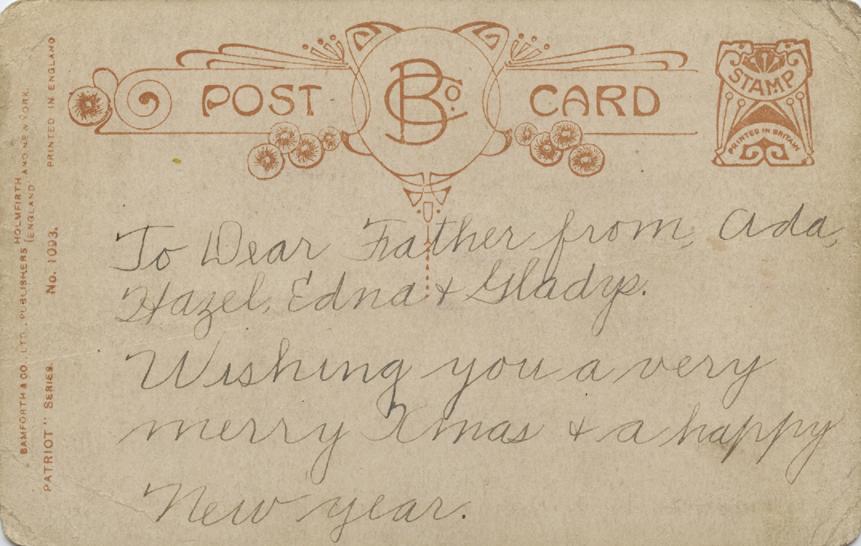 POST BCo. CARD
STAMP
PRINTED IN BRITAIN
To Dear Father from, Ada,
Hazel, Edna & Gladys.
Wishing you a very
merry Xmas & a happy
New year.
BAMFORTH & CO., LTD., PUBLISHERS HOLMFIRTH (ENGLAND) AND NEW YORK.
"PATRIOT" SERIES. No. 1093. PRINTED IN ENGLAND